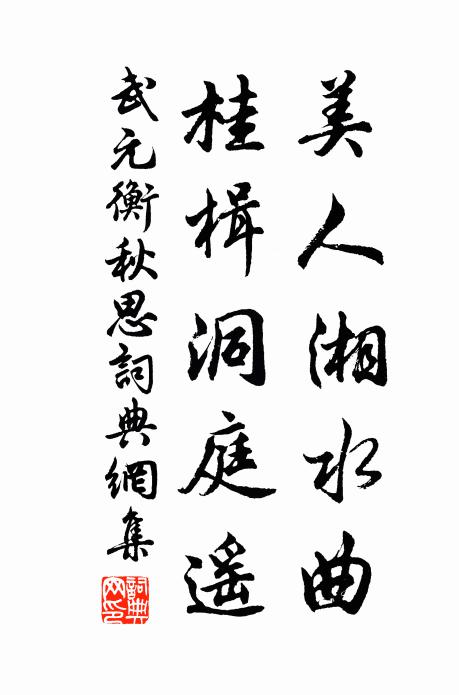 美人湘水曲
桂楫洞庭遥
武元衡秋思詞典網集
詞典網印